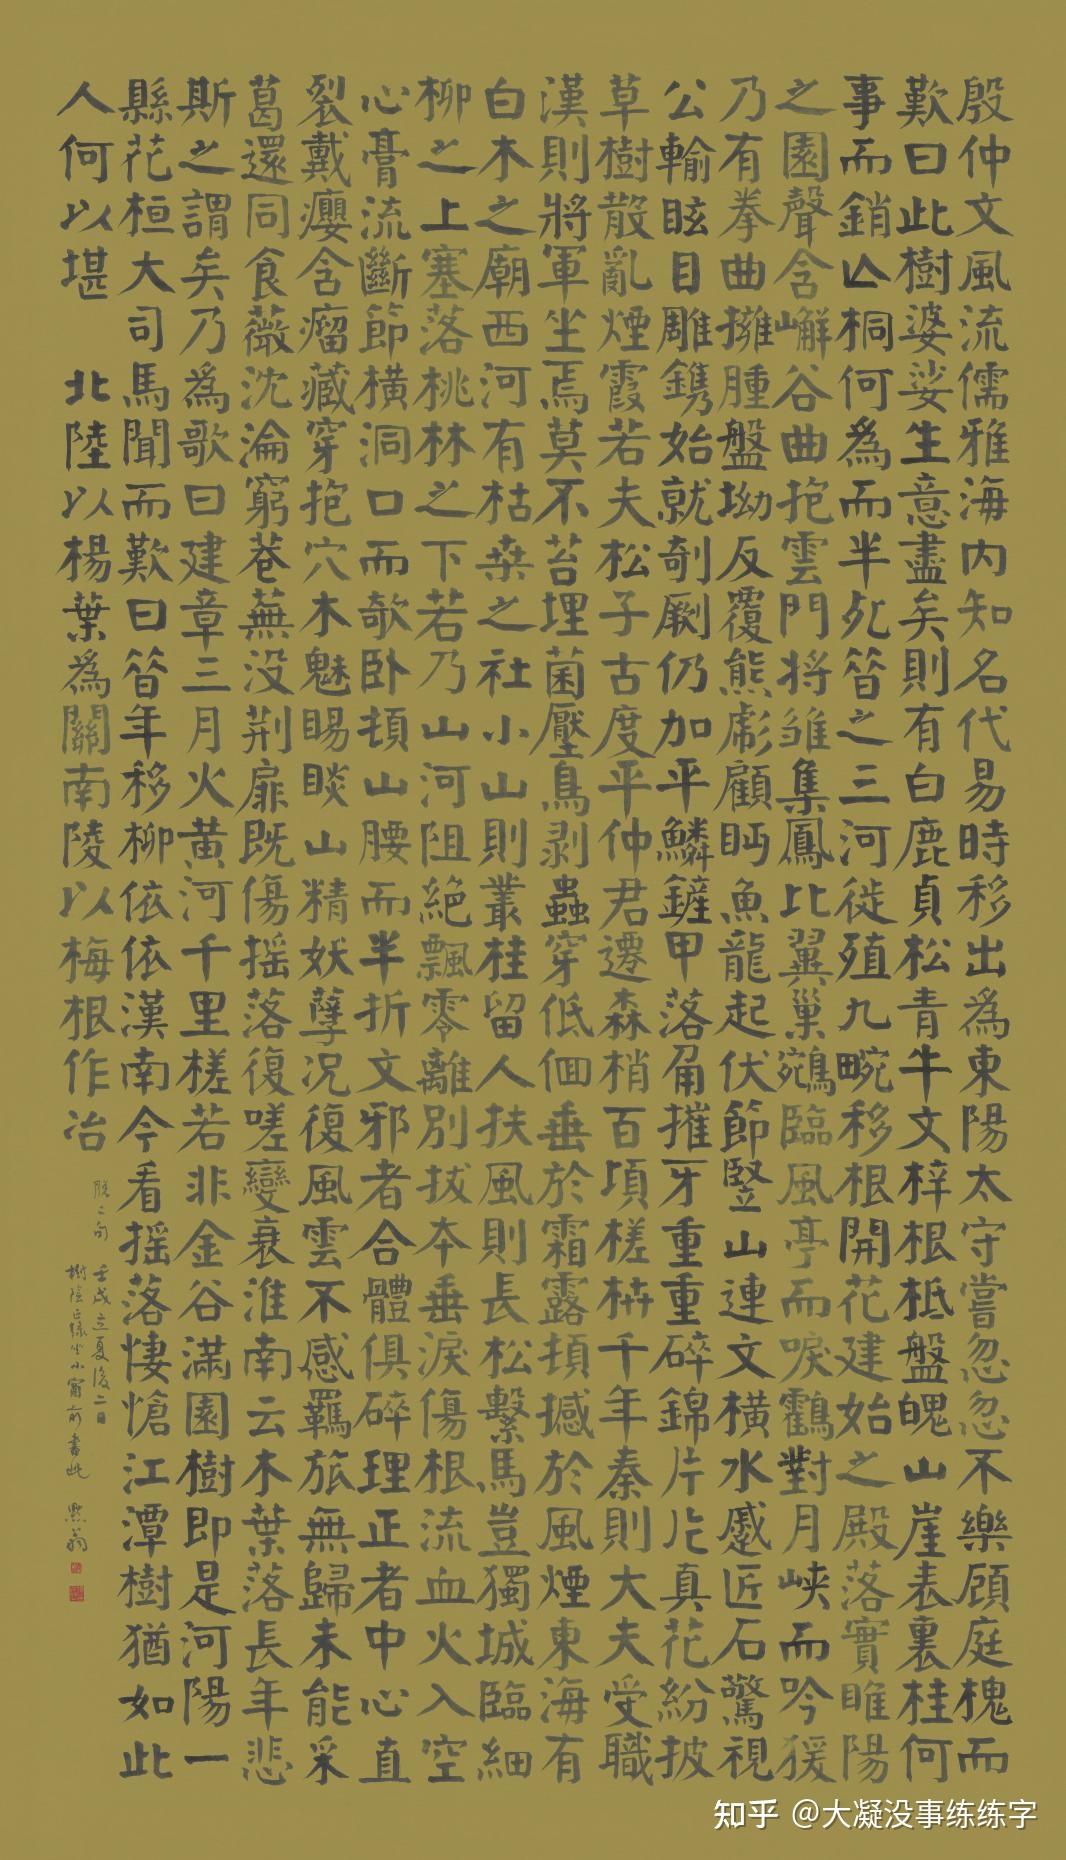 殷仲文風流儒雅海内知名代易時移出為東陽太守嘗忽忽不樂顧庭槐而
歎曰此樹婆娑生意盡矣則有白鹿貞松青牛文梓根柢盤魄山崖表裏桂何
事而銷亾桐何為而半死昝之三河徙殖九畹移根開花建始之殿落實睢陽
之園聲含嶰谷曲抱雲門将雏集鳳比翼巢鵷臨風亭而唳鸖對月峡而吟猨
乃有拳曲擁腫盤坳反覆熊彪顧眄魚龍起伏節竪山連文横水蹙匠石驚視
公輸眩目雕鐫始就剞劂仍加平鱗鏟甲落角摧牙重重碎錦片片真花紛披
草樹散亂煙霞若夫松子古度平仲君遷森梢百頃槎枿千年秦則大夫受職
漢則將軍坐焉莫不苔埋菌壓鳥剥蟲穿低佪垂於霜露頓撼於風煙東海有
白木之廟西河有枯桒之社小山則叢桂留人扶風則長松繫馬豈獨城臨細
柳之上塞落桃林之下若乃山河阻絶飄零離別拔夲垂淚傷根流血火入空
心膏流斷節横洞口而欹卧頓山腰而半折文邪者合體俱碎理正者中心直
裂戴癭含瘤藏穿抱穴木魅賜睒山精妖孽况復風雲不感羈旅無歸未能采
葛還同食薇沈淪窮巷蕪没荆扉既傷摇落復嗟變衰淮南云木葉落長年悲
斯之謂矣乃為歌曰建章三月火黄河千里槎若非金谷滿園樹即是河陽一
縣花桓大司馬聞而歎曰昝年移柳依依漢南今看摇落悽愴江潭樹猶如此
人何以堪 北陸以楊葉為關南陵以梅根作冶
脱二句
壬戌立夏後二日
樹陰正緑坐小窗前書此 默翁
知乎 @大凝没事练练字